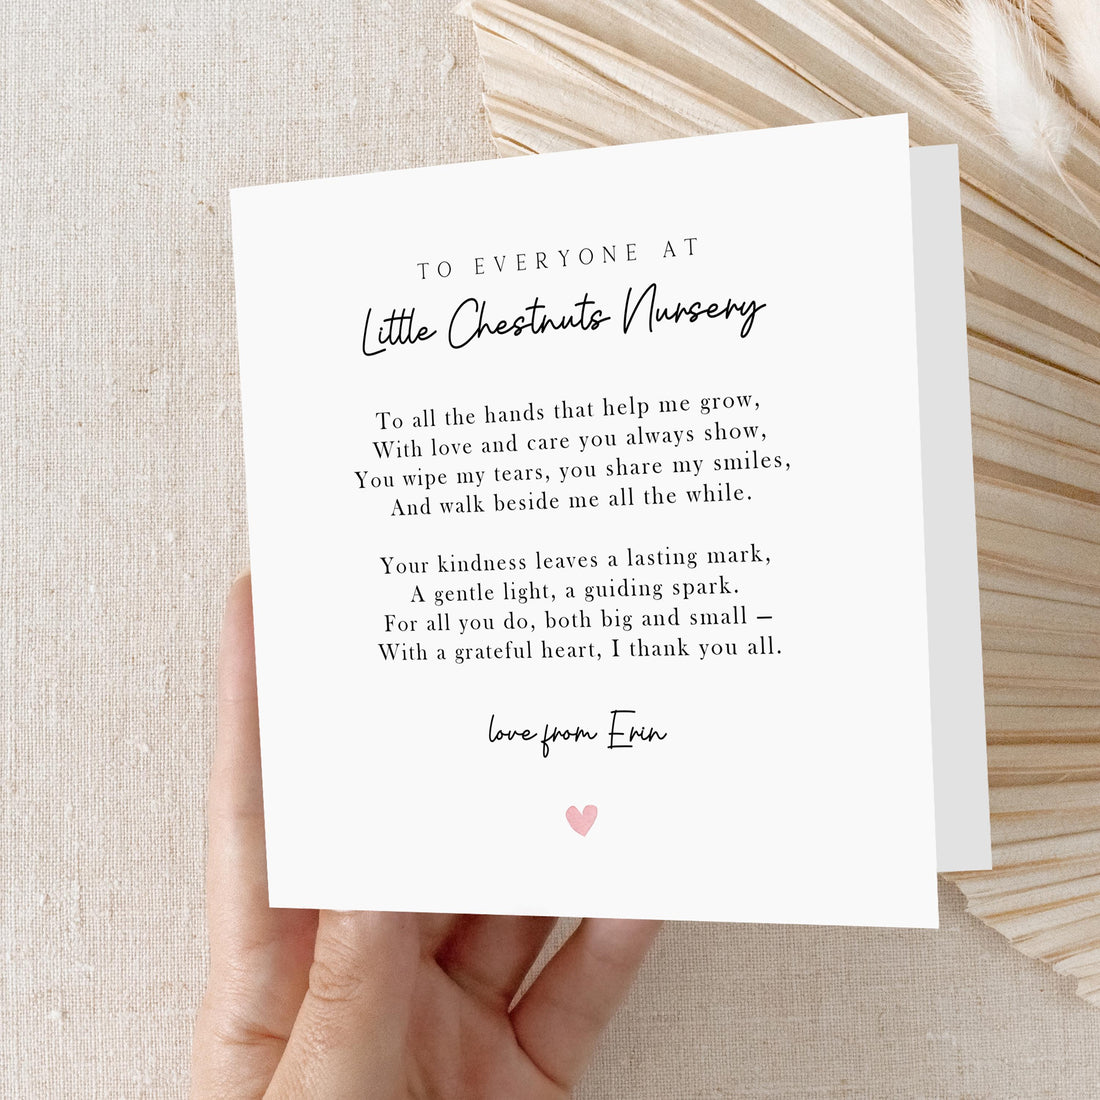 TO EVERYONE AT
Little Chestnuts Nursery
To all the hands that help me grow,
With love and care you always show,
You wipe my tears, you share my smiles,
And walk beside me all the while.
Your kindness leaves a lasting mark,
A gentle light, a guiding spark.
For all you do, both big and small –
With a grateful heart, I thank you all.
love from Erin